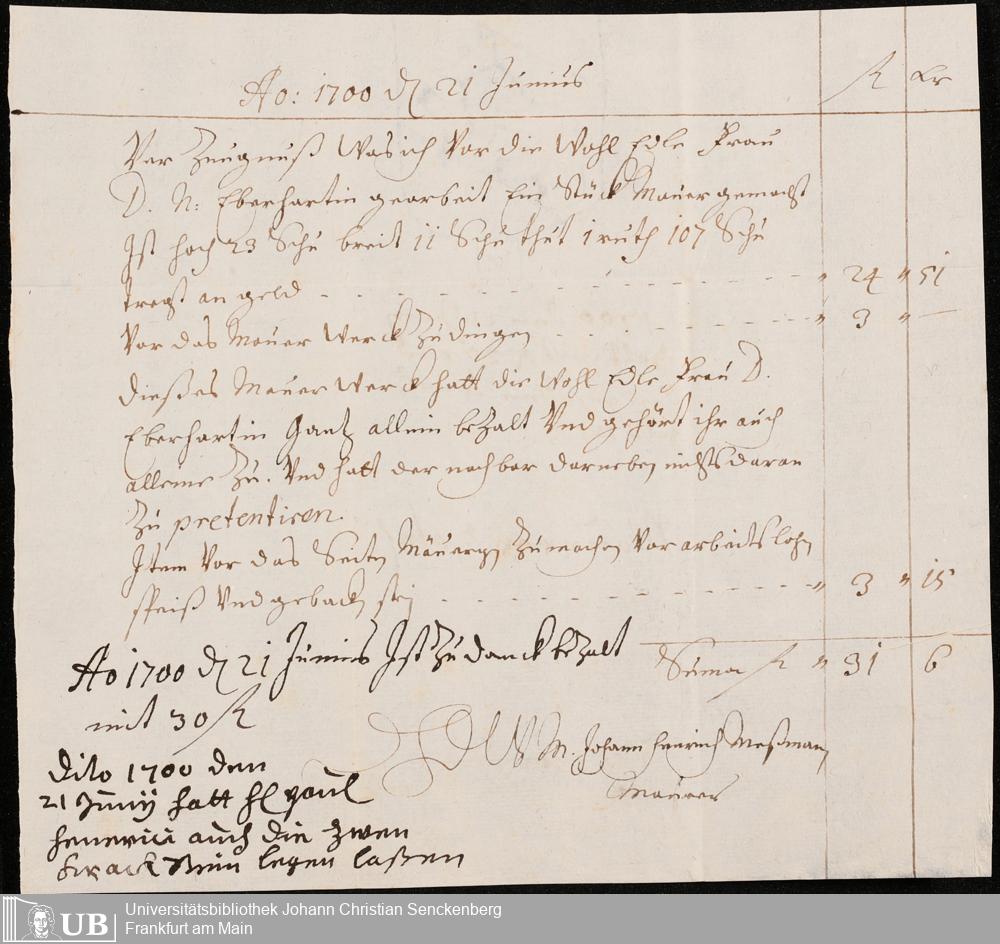 Ao: 1700 d 21 Junius fl Kr
Ver Zeugnuß Was ich Vor die Wohl Edle Frau
D. N: Eberhartin gearbeit Ein Stück Mauer gemacht
Ist hoch 23 Schu breit 11 Schu thut 1 ruth 107 Schu
tregt an geld - - - " 24 " 51
Vor das Mauer Werck Zu dingen - - - " 3 " —
Dießes Mauer Werck hatt die Wohl Edle Frau D.
Eberhartin Gantz allein bezalt Vnd gehört ihr auch
alleine Zu. Vnd hatt der nachbar darneben nichts daran
Zu pretentiren.
Item Vor das Seiten Mäuergen Zu machen Vor arbeits lohn
speiß Vnd gebacken stein - - - " 3 " 15
Suma fl " 31 6
Ao 1700 d 21 Junius Ist Zu danck bezalt
mit 30 fl
M. Johann Henrich Meßmann
Maurer
Dito 1700 den
21 Junij hatt H
henerici auch die zwen
stein legen laßen
Universitätsbibliothek Johann Christian Senckenberg
Frankfurt am Main
UB